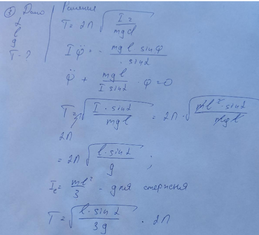 ① Дано
Решение
l
g
T - ?
T = 2π √(I / mgd)
I φ̈ = - mgl sin φ / sin α
φ̈ + mgl / I sin α φ = 0
T = 2π √(I · sin α / mgl) = 2π · √(ml² sin α / mgl)
= 2π √(l · sin α / g) ;
I = ml² / 3 - для стержня
T = √(l · sin α / 3g) · 2π